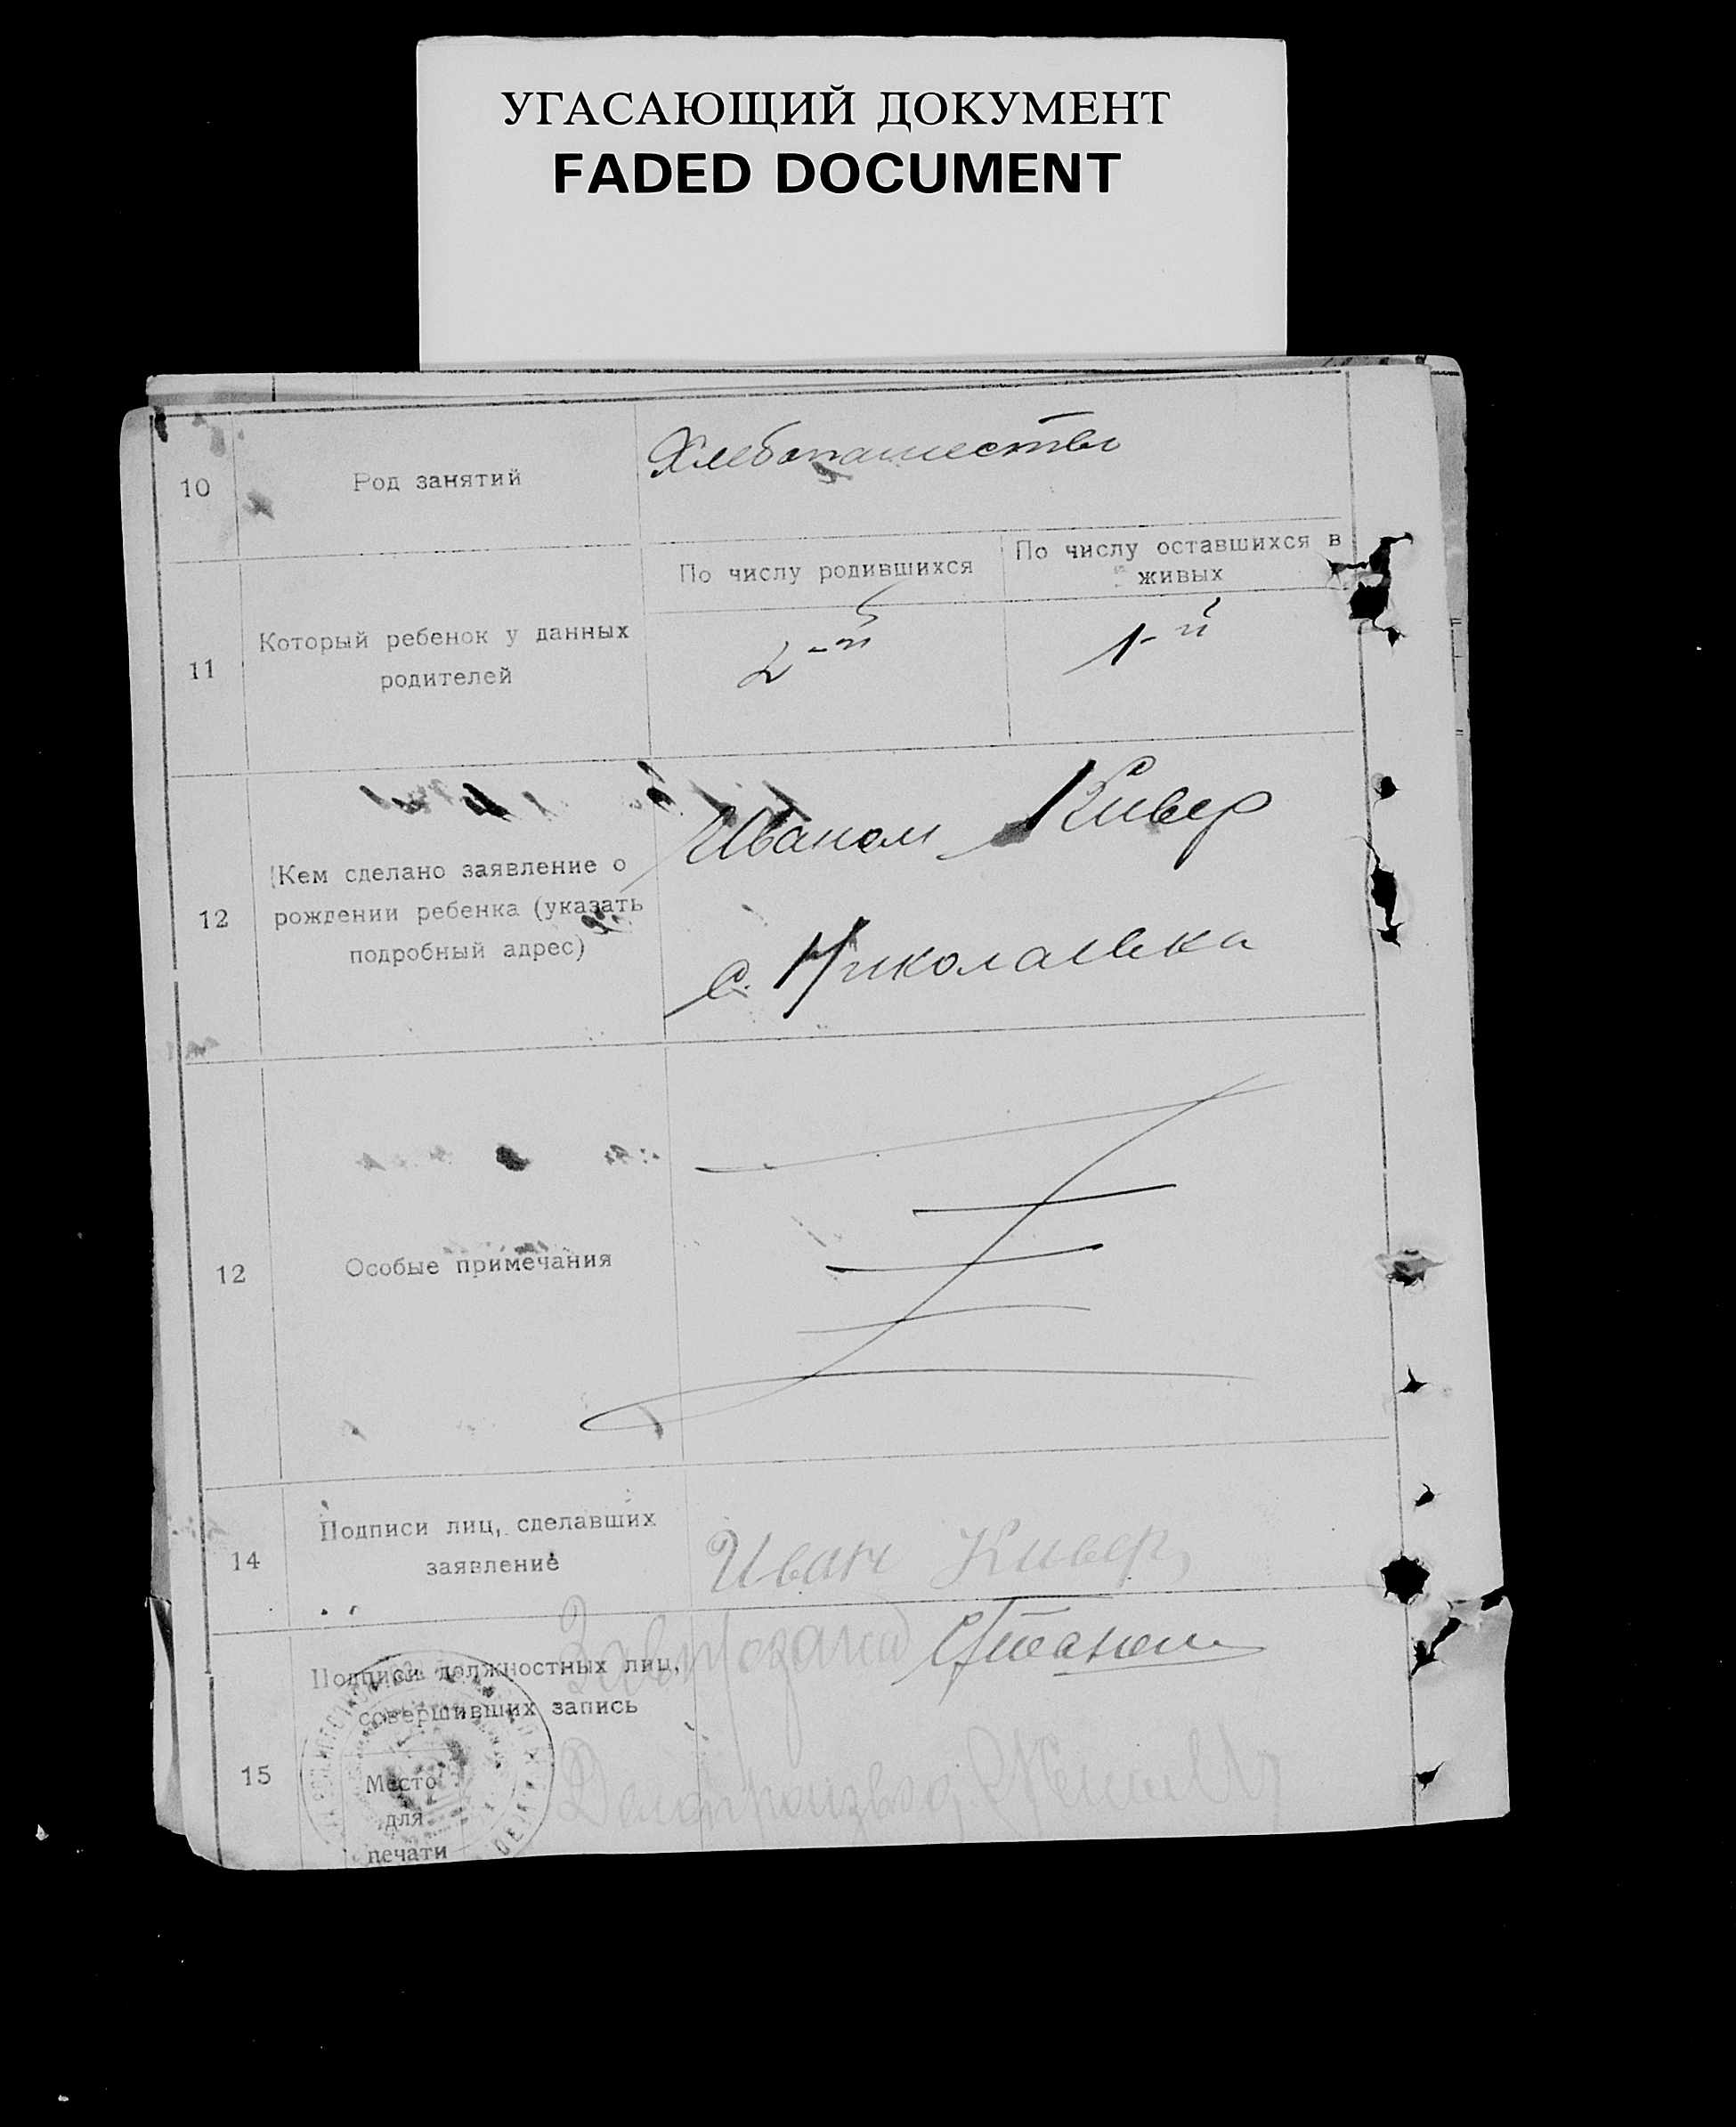 УГАСАЮЩИЙ ДОКУМЕНТ
FADED DOCUMENT
10
Род занятий
Хлебопашество
11
Который ребенок у данных
родителей
По числу родившихся
По числу оставшихся в
живых
2-й
1-й
12
Кем сделано заявление о
рождении ребенка (указать
подробный адрес)
Иваном Кивер
с. Николаевка
12
Особые примечания
14
Подписи лиц, сделавших
заявление
Иван Кивер
15
Подписи должностных лиц,
совершивших запись
Место
для
печати